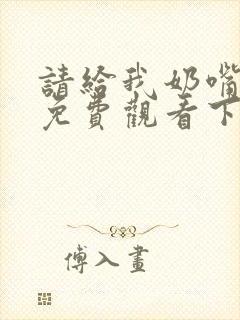 請給我奶嘴
免費觀看下
傅入畫